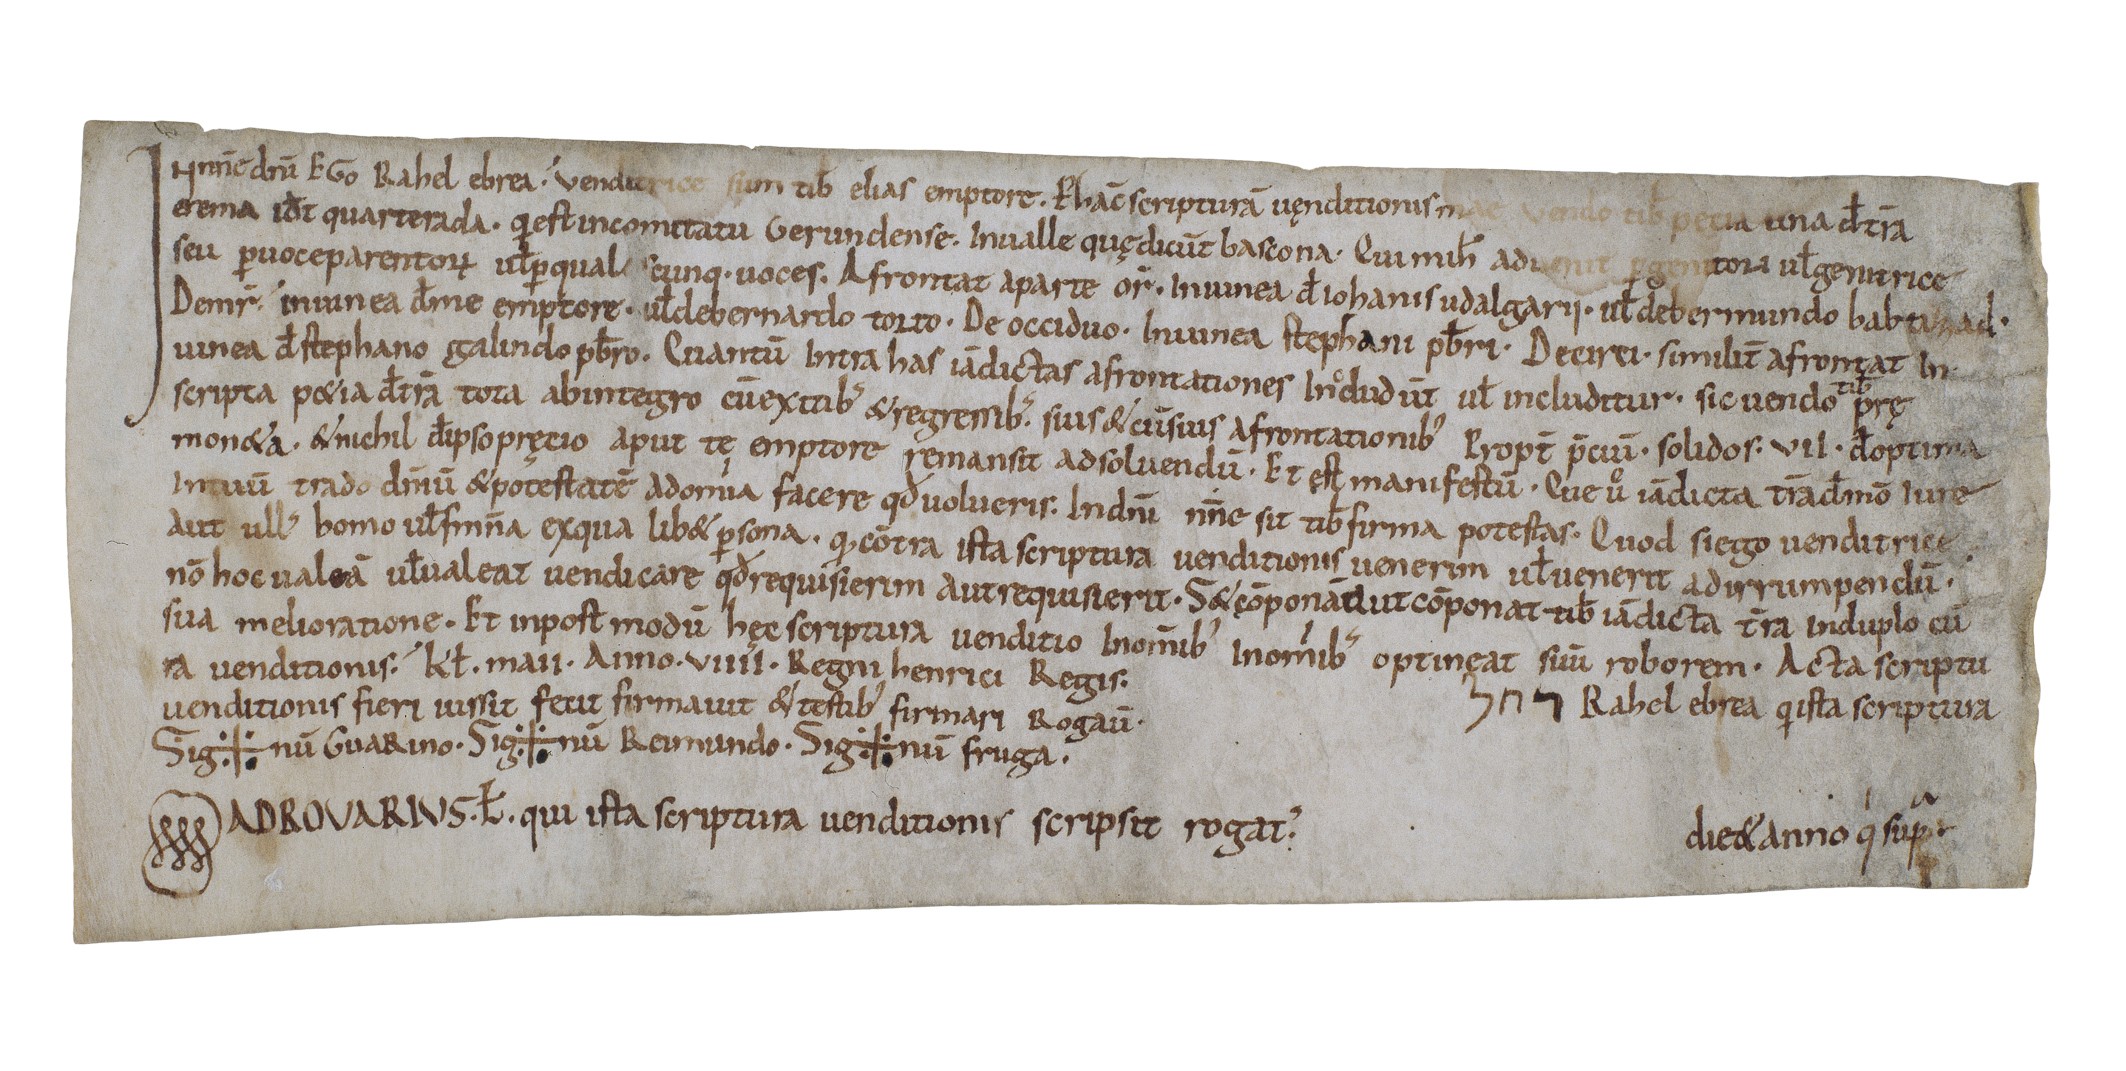 In nñe dnī EGo Rahel ebrea. venditrice sum tib elias emptore. P hāc scripturā uęnditionis mae vendo tib petia una đ trā
erema id̄t quarterada. q̨ est in comitatu Gerundense. In ualle quę dicūt bascona. Qui mih aduenit p̱ genitori ul̄ genitrice
seu p̱ uoce parentorꝝ ul̄ p̱ qualescunq. uoces. Afrontat a parte or̄. In uinea đ iohanis udalgarii. ul̄ de bermundo babtizad.
De mr̄. in uinea đ me emptore. ul̄ de bernardo torto. De occiduo. In uinea stephani pb̄ri. De circi. similit̄ afrontat In
uinea đ stephano galindo pb̄ro. Quantū Intra has iādictas afrontationes Includūt ul̄ includitur. sic uendo tib prę
scripta p&ia đ trā tota ab integro cū exitib' & regressib'. suis & cū suis afrontationib' Propt̄ p̄ciū. solidos. VII. đ optima
mon&a. & nichil đ ipso pręcio aput tę emptore remansit ad soluendū. Et est manifestū. Que u° iādicta trā đ mō Iure
In tuū trado dm̄ū & potestatē ad om̄ia facere qđ uolueris. In dnī nñe sit tib firma potestas. Quod si ego uenditrice
Aut ull' homo ul̄ fmīna ex qua lib& p̱sona. q̨ cōtra ista scriptura uenditionis uenerim ul̄ uenerit ad irrumpendū.
nō hoc ualeā ul̄ ualeat uendicare qđ requisierim Aut requisierit. S& cōponā aut cōponat tib iādicta trā in duplo cū
sua melioratione. Et in post modū hęc scriptura uenditio In om̄ib' In om̄ib' optineat suū roborem. Acta scriptu
ra uenditionis. kł. maii. Anno. VIIII. Regni henrici Regis.
רחל Rahel ebrea q̨ ista scriptura
uenditionis fieri iussit fecit firmauit & testib' firmari Rogauī.
Sig+nū Guarino. Sig+nū Reimundo. Sig+nū fruga.
ADROVARIVS. Ł. qui ista scriptura uenditionis scripsit rogat'.
die & anno q̇ sup̱ᵃ